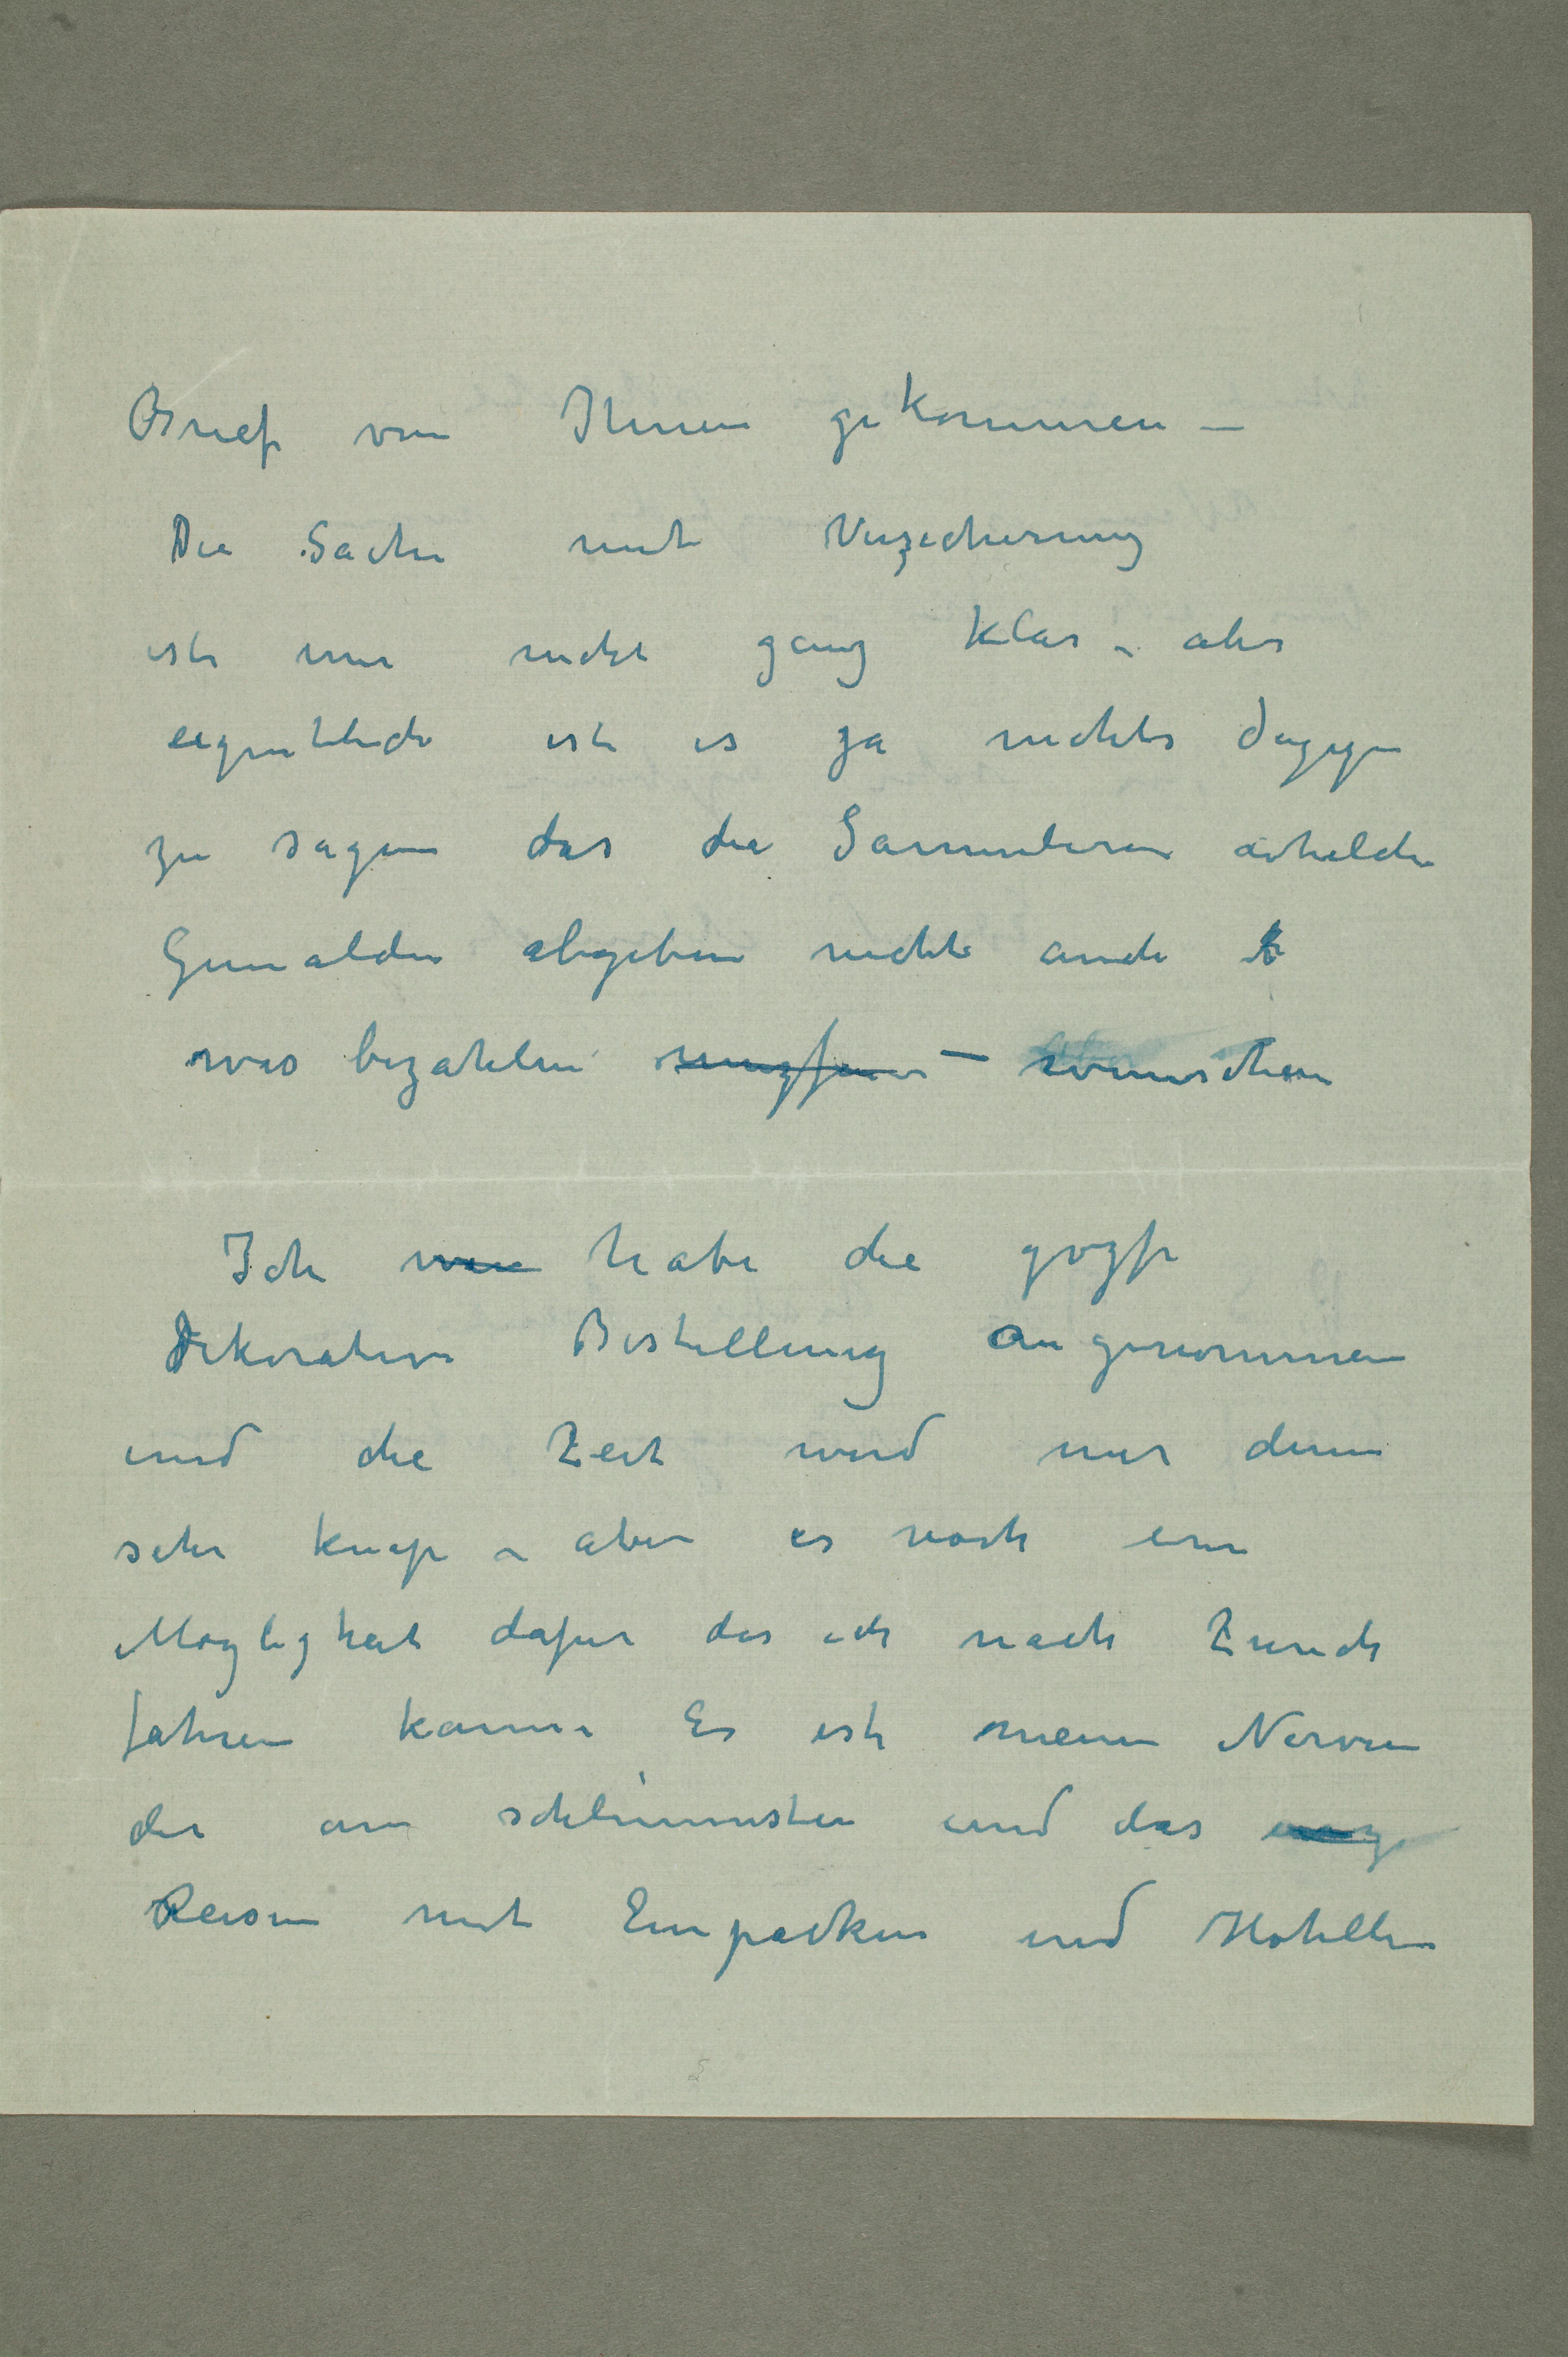 Brief von Ihnen gekommen –
Die Sache mit Verzicherung
ist mir nicht ganz klar – aber
eigentlich ist es ja nichts dagegen
zu sagen das die Sammleren
Gemälden abgeben nicht auch
was bezahlen muzfen – wünschen
Ich habe die grozfe
dekorative Bestellung angenommen
und die Zeit wird mir denn
sehr knap – aber es noch eine
Möglighkeit dafür das ich nach Zürich
fahren kann. Es ist meine Nerven
die am schlimmsten und das
Reisen mit Einpacken und Hotellen